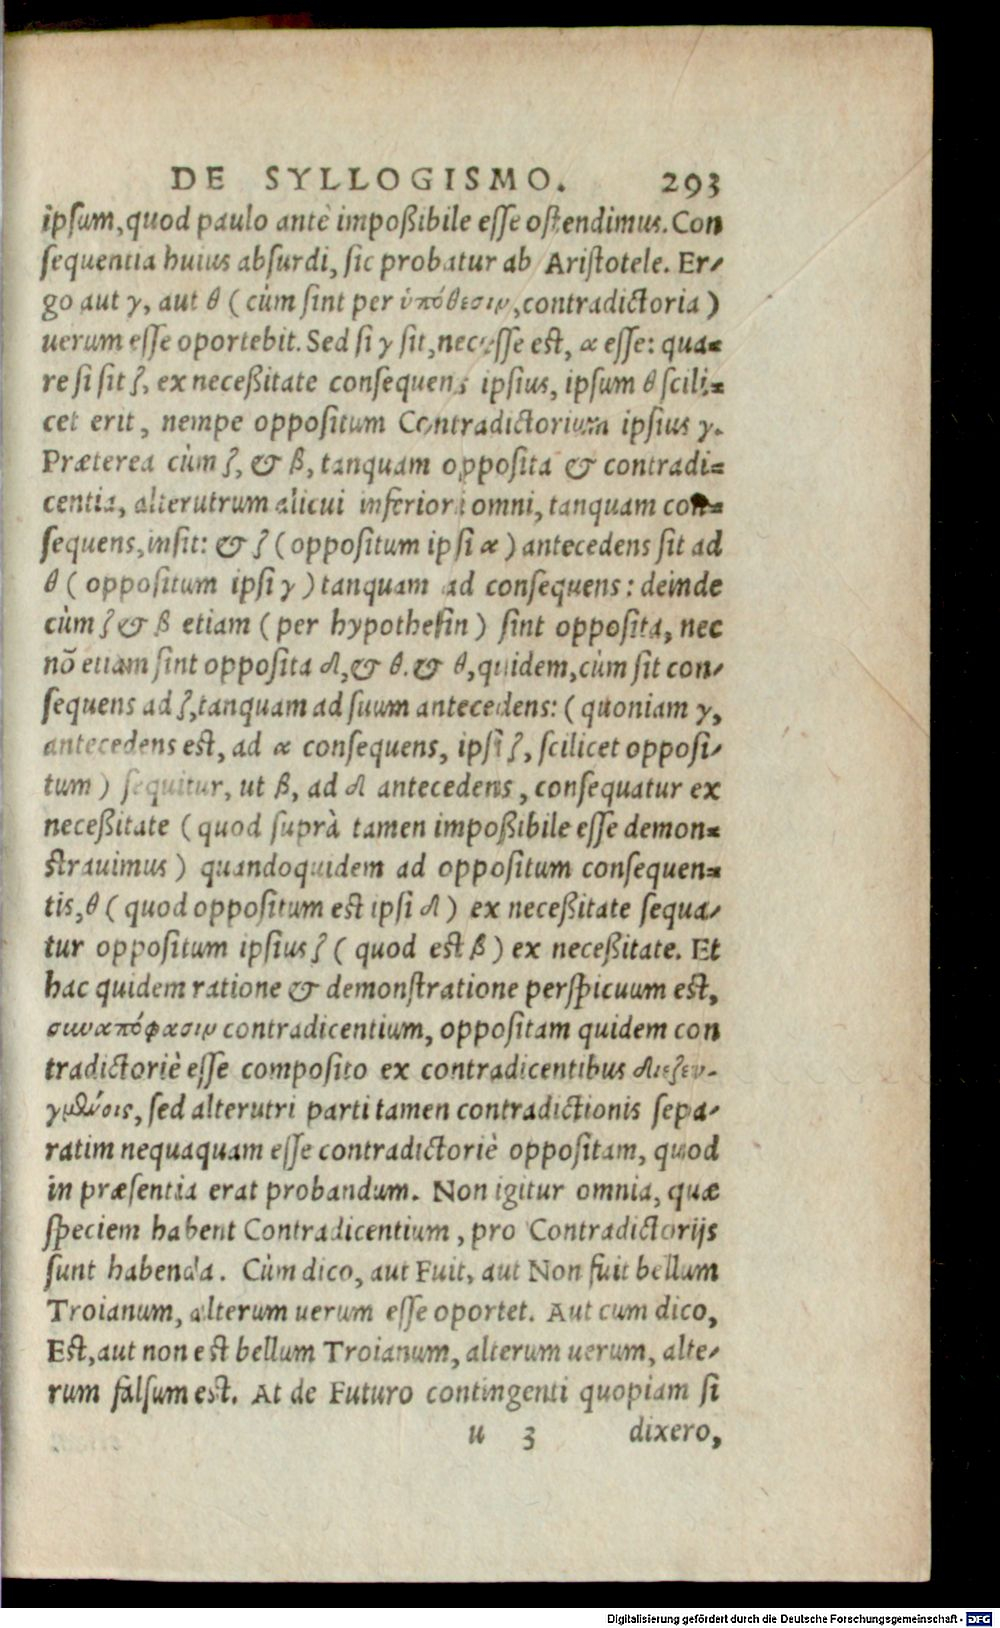 DE SYLLOGISMO. 293
ipsum, quod paulo antè impoßibile esse ostendimus. Con
sequentia huius absurdi, sic probatur ab Aristotele. Er-
go aut γ, aut θ (cùm sint per ὑπόθεσιν, contradictoria)
uerum esse oportebit. Sed si γ sit, necesse est, α esse: qua=
re si sit ζ, ex neceßitate consequens ipsius, ipsum θ scili=
cet erit, nempe oppositum Contradictorium ipsius γ.
Præterea cùm ζ, & β, tanquam opposita & contradi=
centia, alterutrum alicui inferiori omni, tanquam con=
sequens, insit: & ζ (oppositum ipsi α) antecedens sit ad
θ (oppositum ipsi γ) tanquam ad consequens: deinde
cùm ζ & β etiam (per hypothesin) sint opposita, nec
nō etiam sint opposita δ, & θ. & θ, quidem, cùm sit con-
sequens ad ζ, tanquam ad suum antecedens: (quoniam γ,
antecedens est, ad α consequens, ipsi ζ, scilicet opposi-
tum) sequitur, ut β, ad δ antecedens, consequatur ex
neceßitate (quod suprà tamen impoßibile esse demon=
strauimus) quandoquidem ad oppositum consequen=
tis, θ (quod oppositum est ipsi δ) ex neceßitate sequa-
tur oppositum ipsius ζ (quod est β) ex neceßitate. Et
hac quidem ratione & demonstratione perspicuum est,
συναπόφασιν contradicentium, oppositam quidem con
tradictoriè esse composito ex contradicentibus διεζευ-
γμένοις, sed alterutri parti tamen contradictionis sepa-
ratim nequaquam esse contradictoriè oppositam, quod
in præsentia erat probandum. Non igitur omnia, quæ
speciem habent Contradicentium, pro Contradictorijs
sunt habenda. Cùm dico, aut Fuit, aut Non fuit bellum
Troianum, alterum uerum esse oportet. Aut cum dico,
Est, aut non est bellum Troianum, alterum uerum, alte-
rum falsum est. At de Futuro contingenti quopiam si
u 3 dixero,
Digitalisierung gefördert durch die Deutsche Forschungsgemeinschaft - DFG